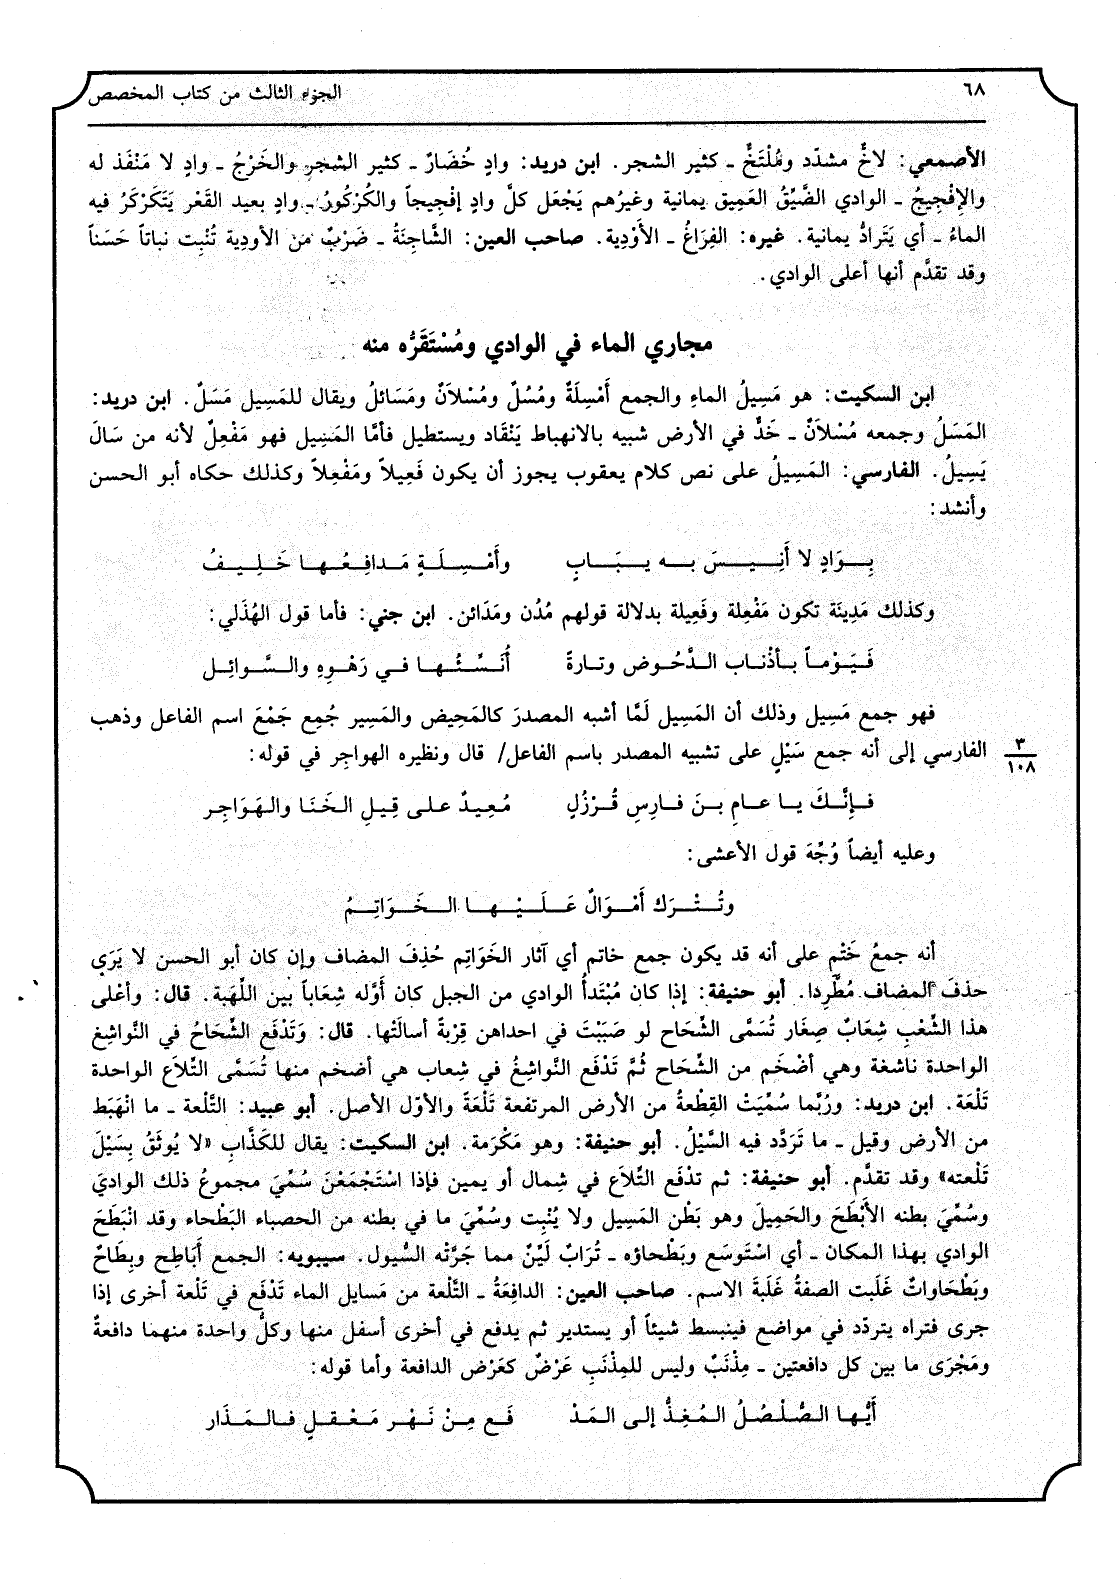 ٦٨
الجزء الثالث من كتاب المخصص
الأصمعي: لاخٌّ مشدّد ومُلْتَخٌّ ـ كثير الشجر. ابن دريد: وادٍ خُضَارٌ ـ كثير الشجر والخَرْجُ ـ وادٍ لا مَنْفَذ له
والإفْجِيجُ ـ الوادي الضَّيِّقُ العَمِيق يمانية وغيرُهم يَجْعَل كلَّ وادٍ إفْجِيجاً والكُرْكُورُ ـ وادٍ بعيد القَعْر يَتَكَرْكَرُ فيه
الماءُ ـ أي يَتَرادُّ يمانية. غيره: الفِرَاغُ ـ الأوْدِية. صاحب العين: الشَّاجِنَةُ ـ ضَرْبٌ من الأودِية تُنْبِت نباتاً حَسَناً
وقد تقدَّم أنها أعلى الوادي.
مجاري الماء في الوادي ومُسْتَقَرُّه منه
ابن السكيت: هو مَسِيلُ الماءِ والجمع أَمْسِلَةٌ ومُسُلٌ ومُسْلاَنٌ ومَسَائلُ ويقال للمَسِيل مَسَلٌ. ابن دريد:
المَسَلُ وجمعه مُسْلاَنٌ ـ خَدٌّ في الأرض شبيه بالانهباط يَنْقَاد ويستطيل فأمَّا المَسِيل فهو مَفْعِلٌ لأنه من سَالَ
يَسِيلُ. الفارسي: المَسِيلُ على نص كلام يعقوب يجوز أن يكون فَعِيلاً ومَفْعِلاً وكذلك حكاه أبو الحسن
وأنشد:
بِوَادٍ لا أَنِيسَ به يَبَابٍ وأَمْسِلَةٍ مَدافِعُها خَلِيفُ
وكذلك مَدِينَة تكون مَفْعِلة وفَعِيلة بدلالة قولهم مُدُن ومَدَائن. ابن جني: فأما قول الهُذَلي:
فَيَوْماً بأذْناب الدَّحُوض وتارةً أُنَسِّئُها في رَهْوِهِ والسَّوائِل
فهو جمع مَسِيل وذلك أن المَسِيل لَمَّا أشبه المصدرَ كالمَحِيض والمَسِير جُمِع جَمْعَ اسم الفاعل وذهب
الفارسي إلى أنه جمع سَيْلٍ على تشبيه المصدر باسم الفاعل/ قال ونظيره الهواجِر في قوله:
٣
١٠٨
فإنَّكَ يا عامِ بنَ فارِسِ قُرْزُلٍ مُعِيدٌ على قِيلِ الخَنَا والهَوَاجِر
وعليه أيضاً وُجِّهَ قول الأعشى:
وتُتْرَك أَمْوَالٌ عَلَيْها الخَوَاتِمُ
أنه جمعُ خَتْم على أنه قد يكون جمع خاتم أي آثار الخَوَاتِم حُذِفَ المضاف وإن كان أبو الحسن لا يَرَى
حذفَ المضاف مُطَّرِدا. أبو حنيفة: إذا كان مُبْتَدأُ الوادي من الجبل كان أوَّله شِعَاباً بين اللِّهَبة. قال: وأعْلى
هذا الشِّعْبِ شِعَابٌ صِغَار تُسَمَّى الشِّحَاح لو صَبَبْتَ في احداهن قِرْبةً أسالَتْها. قال: وَتَدْفَع الشِّحَاحُ في النَّواشِغ
الواحدة ناشغة وهي أضْخَم من الشِّحَاح ثُمَّ تَدْفَع النَّواشِغُ في شِعاب هي أضخم منها تُسَمَّى التِّلاَع الواحدة
تَلْعَة. ابن دريد: ورُبَّما سُمِّيَتْ القِطْعةُ من الأرض المرتفعة تَلْعَةً والأوّل الأصل. أبو عبيد: التَّلْعة ـ ما انْهَبَط
من الأرض وقيل ـ ما تَرَدَّد فيه السَّيْلُ. أبو حنيفة: وهو مَكْرَمة. ابن السكيت: يقال للكَذَّابِ «لا يُوثَقُ بِسَيْلَ
تَلْعته» وقد تقدَّم. أبو حنيفة: ثم تدْفَع التِّلاَع في شِمال أو يمين فإذا اسْتَجْمَعْنَ سُمِّيَ مجموعُ ذلك الوادِيَ
وسُمِّيَ بطنه الأَبْطَحَ والحَمِيلَ وهو بَطْن المَسِيل ولا يُنْبِت وسُمِّيَ ما في بطنه من الحصباء البَطْحاء وقد انْبَطَحَ
الوادي بهذا المكان ـ أي اسْتَوسَع وبَطْحاؤه ـ تُرَابٌ لَيِّنٌ مما جَرَّتْه السُّيول. سيبويه: الجمع أَبَاطِح وبِطَاحٌ
وبَطْحَاواتٌ غَلَبت الصفةُ غَلَبةَ الاسم. صاحب العين: الدافِعَةُ ـ التَّلْعة من مَسايل الماء تَدْفَع في تَلْعة أخرى إذا
جرى فتراه يتردّد في مواضع فينبسط شيئاً أو يستدير ثم يدفع في أخرى أسفل منها وكلُّ واحدة منهما دافعةٌ
ومَجْرَى ما بين كل دافعتين ـ مِذْنَبٌ وليس للمِذْنَبِ عَرْضٌ كعَرْض الدافعة وأما قوله:
أيُّها الصُّلْصُلُ المُغِذُّ إلى المَدْ فَع مِنْ نَهْر مَعْقلٍ فالمَذَار